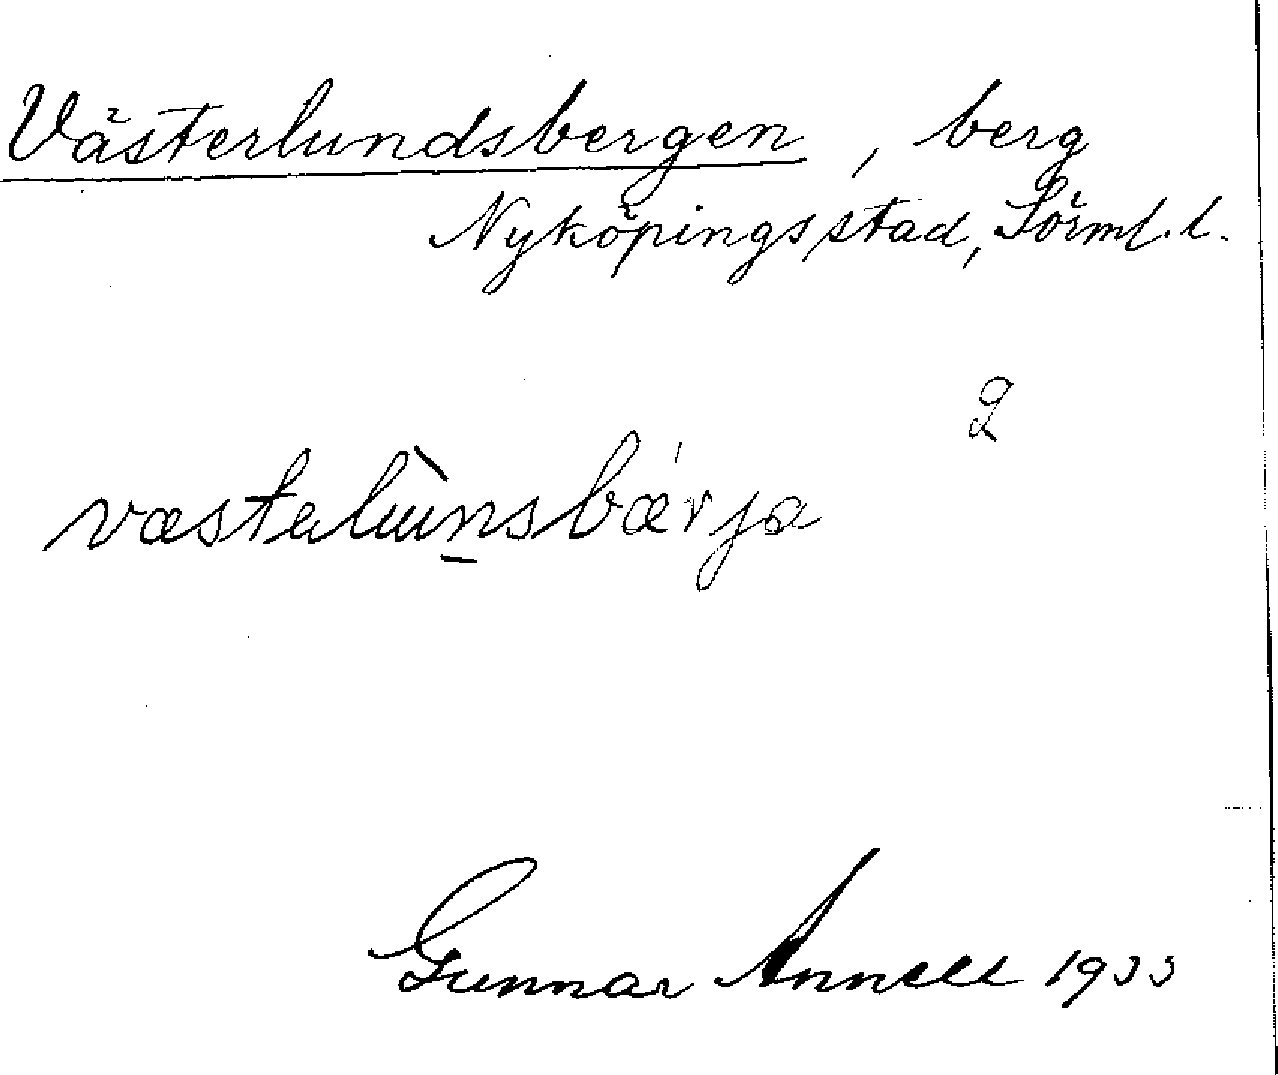 Västerlundsbergen, berg
Nyköpings stad, Sörml. l.
2
væstalùnsbærja
Gunnar Annell 1933